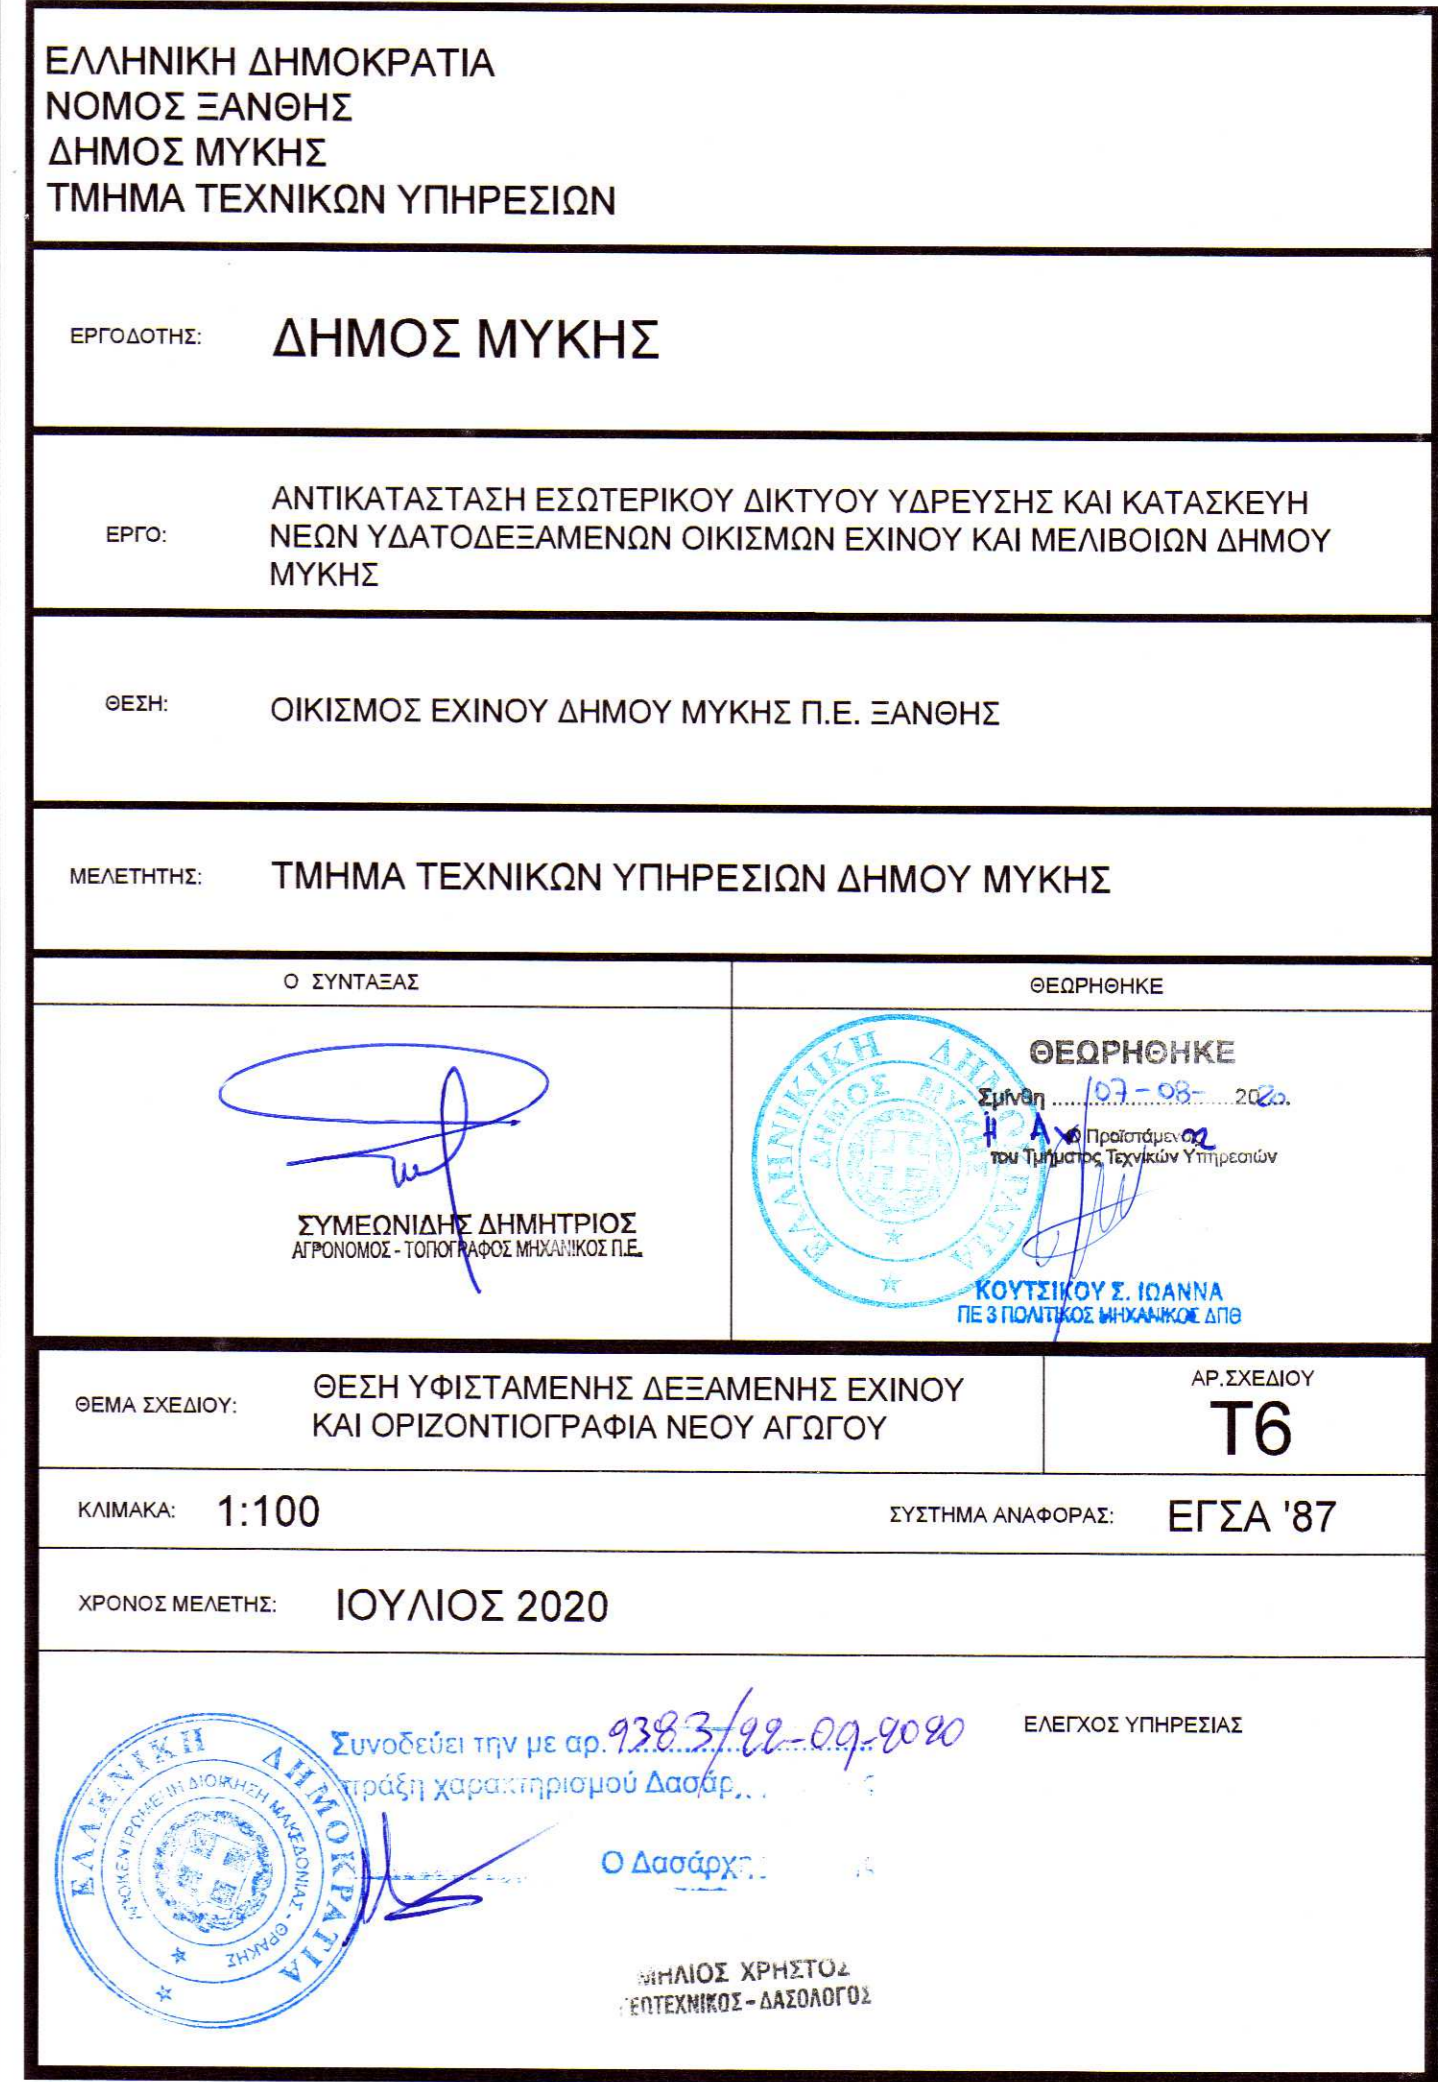 ΕΛΛΗΝΙΚΗ ΔΗΜΟΚΡΑΤΙΑ
ΝΟΜΟΣ ΞΑΝΘΗΣ
ΔΗΜΟΣ ΜΥΚΗΣ
ΤΜΗΜΑ ΤΕΧΝΙΚΩΝ ΥΠΗΡΕΣΙΩΝ
ΕΡΓΟΔΟΤΗΣ: ΔΗΜΟΣ ΜΥΚΗΣ
ΕΡΓΟ: ΑΝΤΙΚΑΤΑΣΤΑΣΗ ΕΣΩΤΕΡΙΚΟΥ ΔΙΚΤΥΟΥ ΥΔΡΕΥΣΗΣ ΚΑΙ ΚΑΤΑΣΚΕΥΗ
ΝΕΩΝ ΥΔΑΤΟΔΕΞΑΜΕΝΩΝ ΟΙΚΙΣΜΩΝ ΕΧΙΝΟΥ ΚΑΙ ΜΕΛΙΒΟΙΩΝ ΔΗΜΟΥ
ΜΥΚΗΣ
ΘΕΣΗ: ΟΙΚΙΣΜΟΣ ΕΧΙΝΟΥ ΔΗΜΟΥ ΜΥΚΗΣ Π.Ε. ΞΑΝΘΗΣ
ΜΕΛΕΤΗΤΗΣ: ΤΜΗΜΑ ΤΕΧΝΙΚΩΝ ΥΠΗΡΕΣΙΩΝ ΔΗΜΟΥ ΜΥΚΗΣ
Ο ΣΥΝΤΑΞΑΣ
ΣΥΜΕΩΝΙΔΗΣ ΔΗΜΗΤΡΙΟΣ
ΑΓΡΟΝΟΜΟΣ - ΤΟΠΟΓΡΑΦΟΣ ΜΗΧΑΝΙΚΟΣ Π.Ε.
ΘΕΩΡΗΘΗΚΕ
ΕΛΛΗΝΙΚΙΚΗ ΔΗΜΟΚΡΑΤΙΑ
ΔΗΜΟΣ ΜΥΚΗΣ
ΘΕΩΡΗΘΗΚΕ
Σμίνθη 07-08- 2020.
Προϊστάμενος
του Τμήματος Τεχνικών Υπηρεσιών
ΚΟΥΤΣΙΚΟΥ Σ. ΙΩΑΝΝΑ
ΠΕ 3 ΠΟΛΙΤΙΚΟΣ ΜΗΧΑΝΙΚΟΣ ΔΠΘ
ΘΕΜΑ ΣΧΕΔΙΟΥ: ΘΕΣΗ ΥΦΙΣΤΑΜΕΝΗΣ ΔΕΞΑΜΕΝΗΣ ΕΧΙΝΟΥ
ΚΑΙ ΟΡΙΖΟΝΤΙΟΓΡΑΦΙΑ ΝΕΟΥ ΑΓΩΓΟΥ
ΑΡ.ΣΧΕΔΙΟΥ
Τ6
ΚΛΙΜΑΚΑ: 1:100
ΣΥΣΤΗΜΑ ΑΝΑΦΟΡΑΣ: ΕΓΣΑ '87
ΧΡΟΝΟΣ ΜΕΛΕΤΗΣ: ΙΟΥΛΙΟΣ 2020
ΕΛΛΗΝΙΚΗ ΔΗΜΟΚΡΑΤΙΑ
ΑΠΟΚΕΝΤΡΩΜΕΝΗ ΔΙΟΙΚΗΣΗ ΜΑΚΕΔΟΝΙΑΣ - ΘΡΑΚΗΣ
Συνοδεύει την με αρ. 9383/22-09-2020
πράξη χαρακτηρισμού
Ο
ΕΛΕΓΧΟΣ ΥΠΗΡΕΣΙΑΣ
ΜΗΛΙΟΣ ΧΡΗΣΤΟΣ
ΓΕΩΤΕΧΝΙΚΟΣ - ΔΑΣΟΛΟΓΟΣ